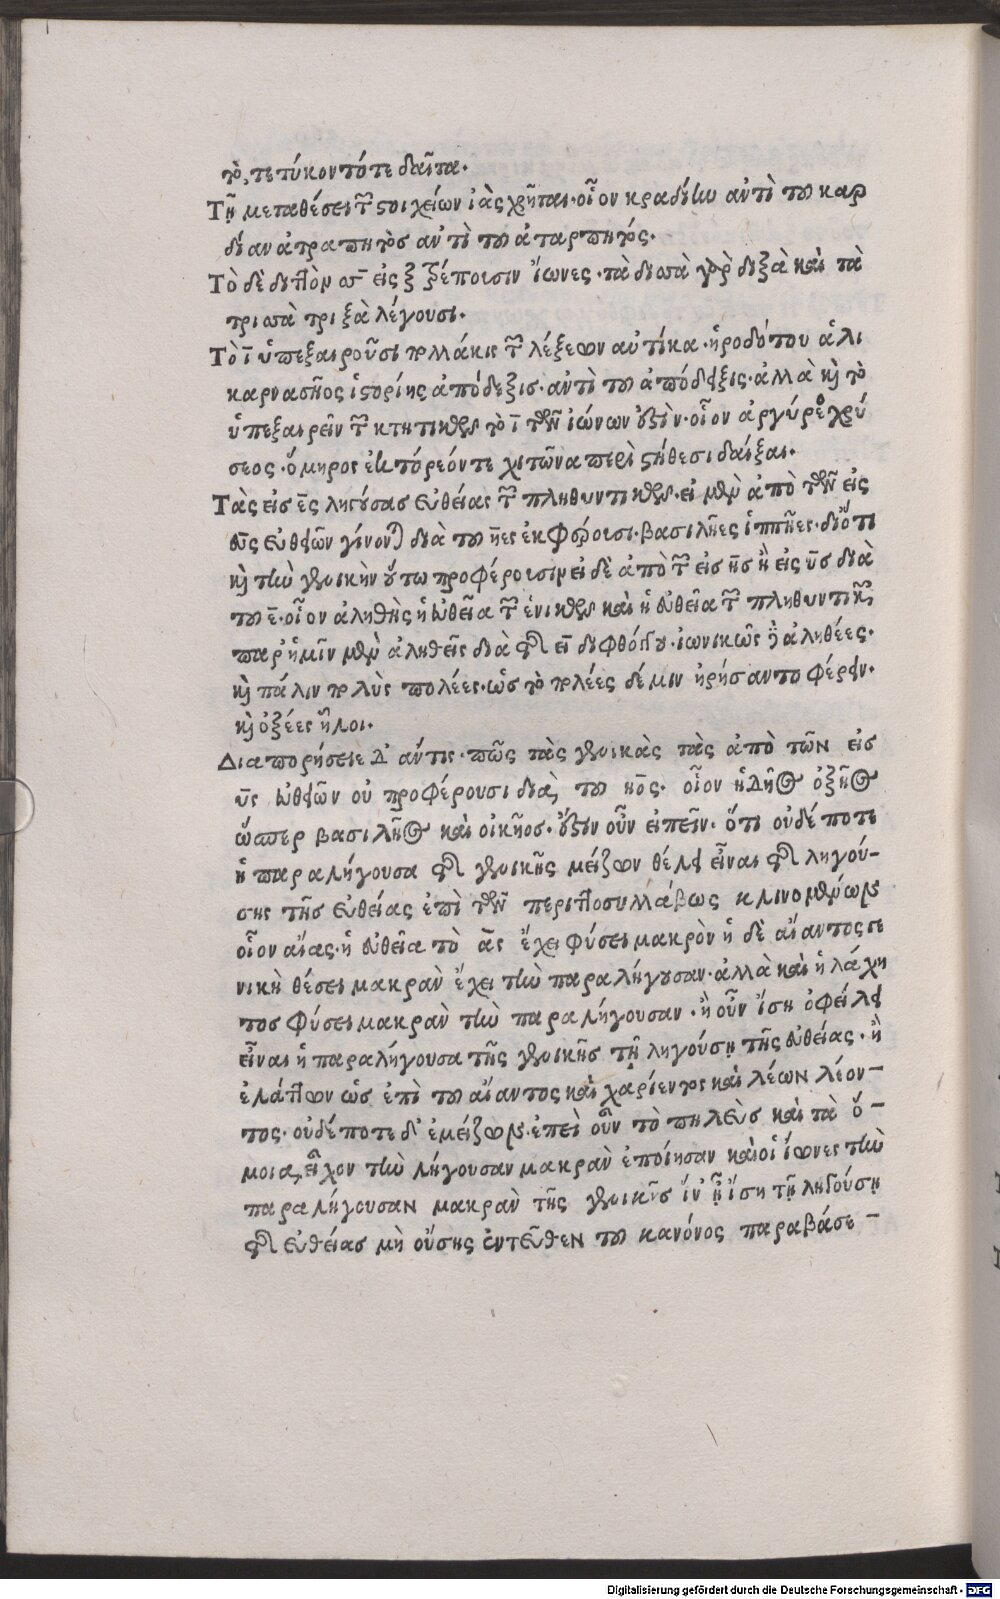 τὸ, τετύκοντό τε δαῖτα.
Τῇ μεταθέσει τῶν στοιχείων ἰὰς χρῆται. οἷον κραδίην ἀντὶ τοῦ καρ
δίαν ἀτραπητὸσ ἀντὶ τοῦ ἀταρπητός.
Τὸ δὲ διπλὸν σ̅ σ̅ εἰς ξ τρέπουσιν ἴωνες. τὰ δισσὰ γὰρ διξὰ καὶ τὰ
τρισσὰ τριξὰ λέγουσι.
Τὸ ῑ ὑπεξαιροῦσι πολλάκις τῶν λέξεων αὐτίκα. ἡροδότου ἁλι
καρνασῆος ἱστορίης ἀπόδεξισ. ἀντὶ τοῦ ἀπόδειξις. ἀλλὰ καὶ τὸ
ὑπεξαιρεῖν τῶν κτητικῶν τὸ ῑ τῶν ἰώνων ἐστὶν. οἷον ἀργύρεος χρύ
σεος. ὅμηρος ἑκτόρεόν τε χιτῶνα περὶ στήθεσι δαίξαι.
Τὰς εἰσ ε̅ς ληγούσας εὐθείας τῶν πληθυντικῶν. εἰ μὲν ἀπὸ τῶν εἰς
ευς εὐθειῶν γίνονται διὰ τοῦ ηες ἐκφέρουσι. βασιλῆες ἱππῆες. διότι
καὶ τὴν γενικὴν οὕτω προφέρουσιν εἰ δὲ ἀπὸ τῶν εἰσ ησ ἢ εἰς υς διὰ
τοῦ ε̅. οἷον ἀληθὴς ἡ εὐθεῖα τῶν ἑνικῶν καὶ ἡ εὐθεῖα τῶν πληθυντικῶν
παρ' ἡμῖν μὲν ἀληθεῖς διὰ τῆς ει διφθόγγου. ἰωνικῶς δὲ ἀληθέες.
καὶ πάλιν πολὺς πολέες. ὡσ τὸ πολέες δέ μιν ἠρήσαντο φέρειν.
καὶ ὀξέες ἧλοι.
Διαπορήσειε δ' αὖτις. πῶς τὰς γενικὰς τὰς ἀπὸ τῶν εἰσ
υς εὐθειῶν οὐ προφέρουσι διὰ τοῦ ηος. οἷον ἡδῆος ὀξῆος
ὥσπερ βασιλῆος καὶ οἰκῆοσ. ἔστιν οὖν εἰπεῖν. ὅτι οὐδέποτε
ἡ παραλήγουσα τῆς γενικῆς μείζων θέλει εἶναι τῆς ληγού-
σης τῆσ εὐθείας ἐπὶ τῶν περιττοσυλλάβως κλινομένων
οἷον αἴας. ἡ εὐθεῖα τὸ ας ἔχει φύσει μακρὸν ἡ δὲ αἴαντος γε
νικὴ θέσει μακρὰν ἔχει τὴν παραλήγουσαν. ἀλλὰ καὶ ἡ λάχη
τοσ φύσει μακρὰν τὴν παραλήγουσαν. ἢ οὖν ἴση ὀφείλει
εἶναι ἡ παραλήγουσα τῆς γενικῆσ τῇ ληγούσῃ τῆς εὐθείας. ἢ
ἐλάττων ὡς ἐπὶ τοῦ αἴαντος καὶ χαρίεντος καὶ λέων λέον-
τος. οὐδέποτε δ' ἐμείζων. ἐπεὶ οὖν τὸ πηλεὺσ καὶ τὰ ὅ-
μοια, εἶχον τὴν λήγουσαν μακρὰν ἐποίησαν καὶ οἱ ἴωνες τὴν
παραλήγουσαν μακρὰν τῆς γενικῆσ ἵν' ᾖ ἴση τῇ ληγούσῃ
τῆς εὐθείας μὴ οὔσης ἐντεῦθεν τοῦ κανόνος παραβάσε-
Digitalisierung gefördert durch die Deutsche Forschungsgemeinschaft - DFG